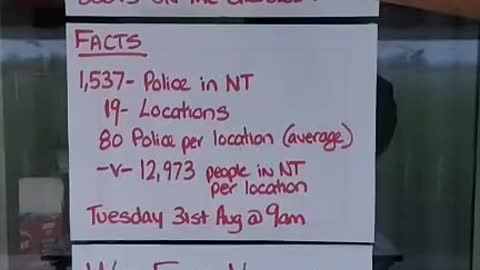 FACTS
1,537- POLICE IN NT
19- LOCATIONS
80 POLICE PER LOCATION (AVERAGE)
-V- 12,973 PEOPLE IN NT
PER LOCATION
TUESDAY 31ST AUG @ 9AM